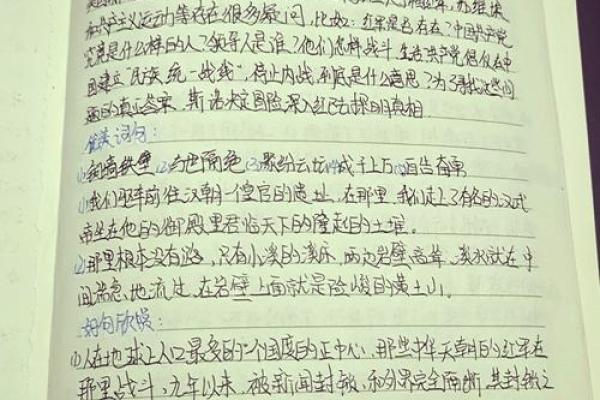 和共产主义运动等存在很多疑问，比如：红军是否存在？中国共产党
究竟是什么样的人？领导人是谁？他们怎样战斗、生活？共产党倡议在中
国建立"民族统一战线"，停止内战，到底是什么意思？为了寻找这些问
题的真正答案，斯诺决定冒险深入红区去探明真相
优美词句：
铜墙铁壁 (2)与世隔绝 (3)众说纷纭 成千上万 百告奋勇
(1)我们驱车前往汉朝一个皇宫的遗址，在那里，我们走上了有名的汉武
帝坐在他的御殿里君临天下的隆起的土堆。
(2)那里根本没有路，只有小溪的溪床，两边岩壁高耸，溪水就在中
间湍急地流过，在岩壁上面就是险峻的黄土山。
好句欣赏：
(1)人在地球上人口最多的一个国度的正中心，那些中华天朝的红军在
那里战斗，九年以来，被新闻封锁，和外界完全隔断，其封锁之